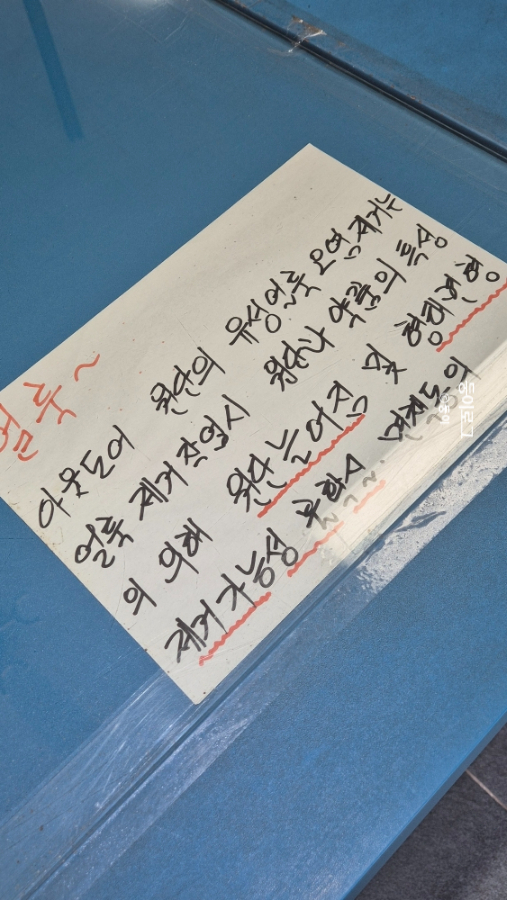 얼룩~
아웃도어 원단의 유성얼룩 오염제거는
얼룩 제거 작업시 원단나 약품의 특성
의 의해 원단늘어짐 및 형태변형
제거가능성 불확실. 변질등의